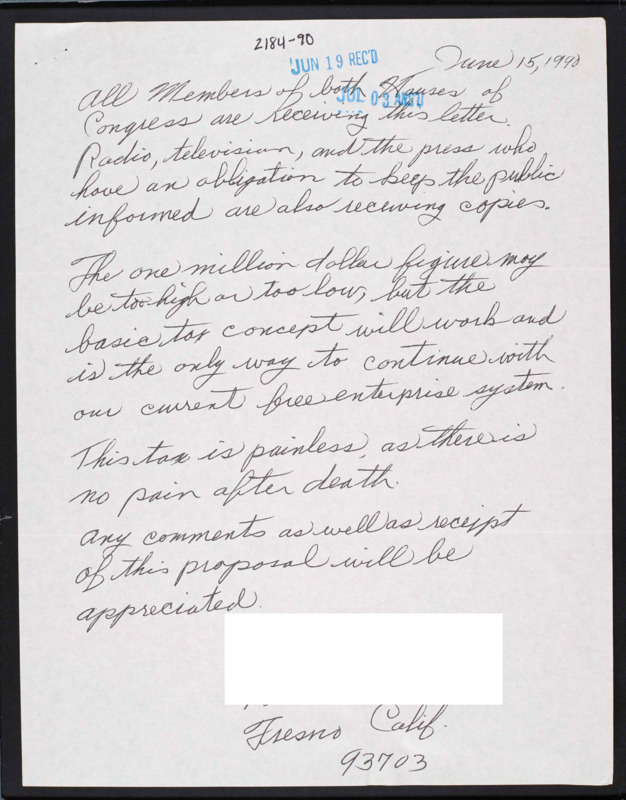 2184-90
JUN 19 REC'D
June 15, 1990
JUL 03 ANS'D
All Members of both Houses of
Congress are receiving this letter.
Radio, television, and the press who
have an obligation to keep the public
informed are also receiving copies.
The one million dollar figure may
be too high or too low, but the
basic tax concept will work and
is the only way to continue with
our current free enterprise system.
This tax is painless, as there is
no pain after death.
Any comments as well as receipt
of this proposal will be
appreciated.
Fresno Calif.
93703